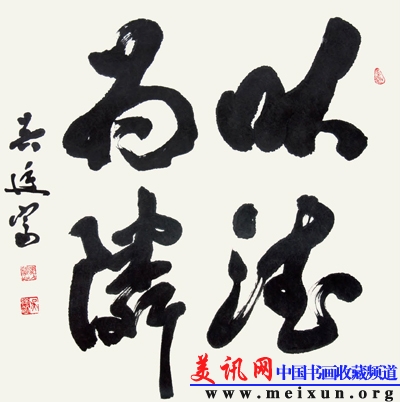 以德
为隣
美讯网中国书画收藏频道
www.meixun.org